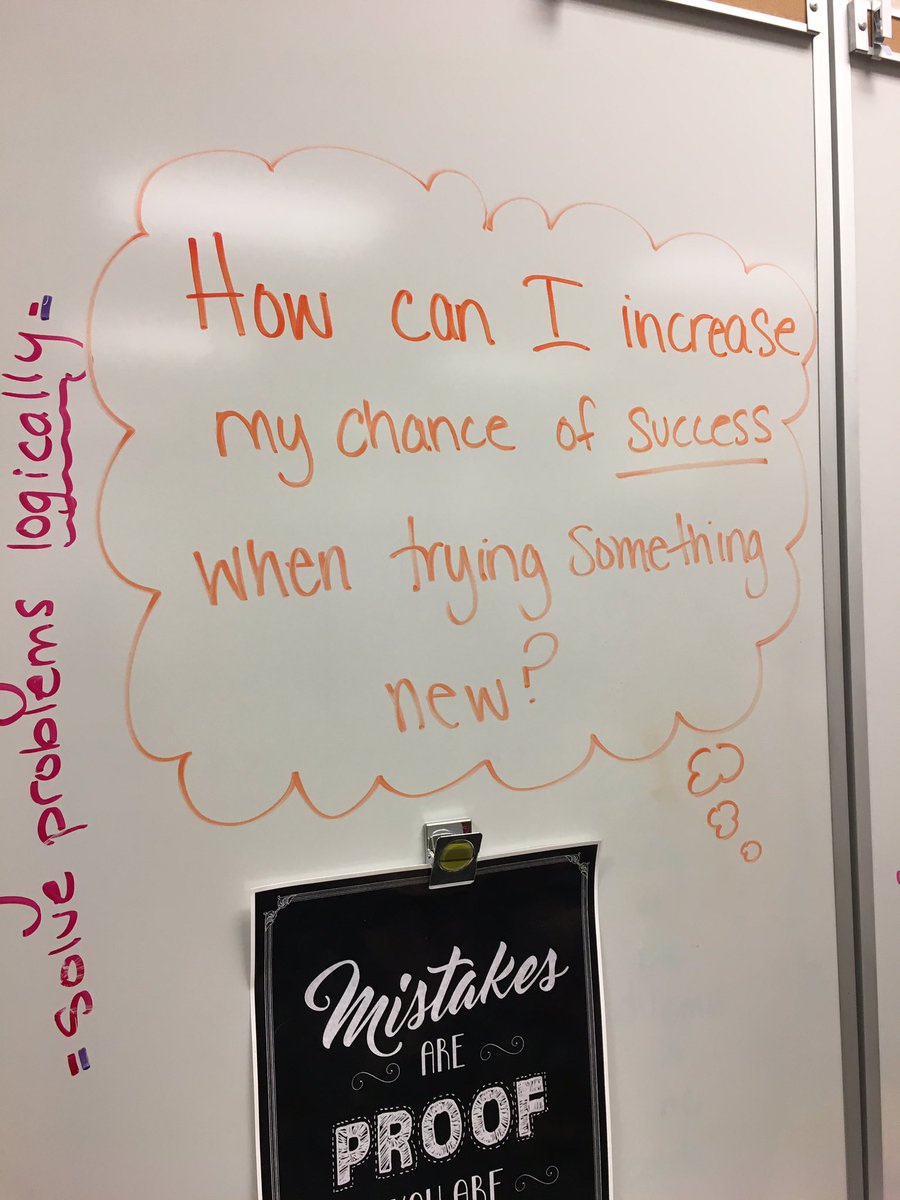 How can I increase
my chance of success
when trying something
new?
=solve problems logically=
Mistakes
ARE
PROOF
YOU ARE